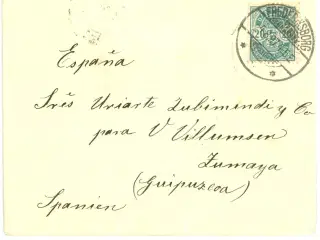 España
Srés Uriarte Zubimendi y Co
para V Villumsen
Zumaya
(Guipuzcoa)
Spanien